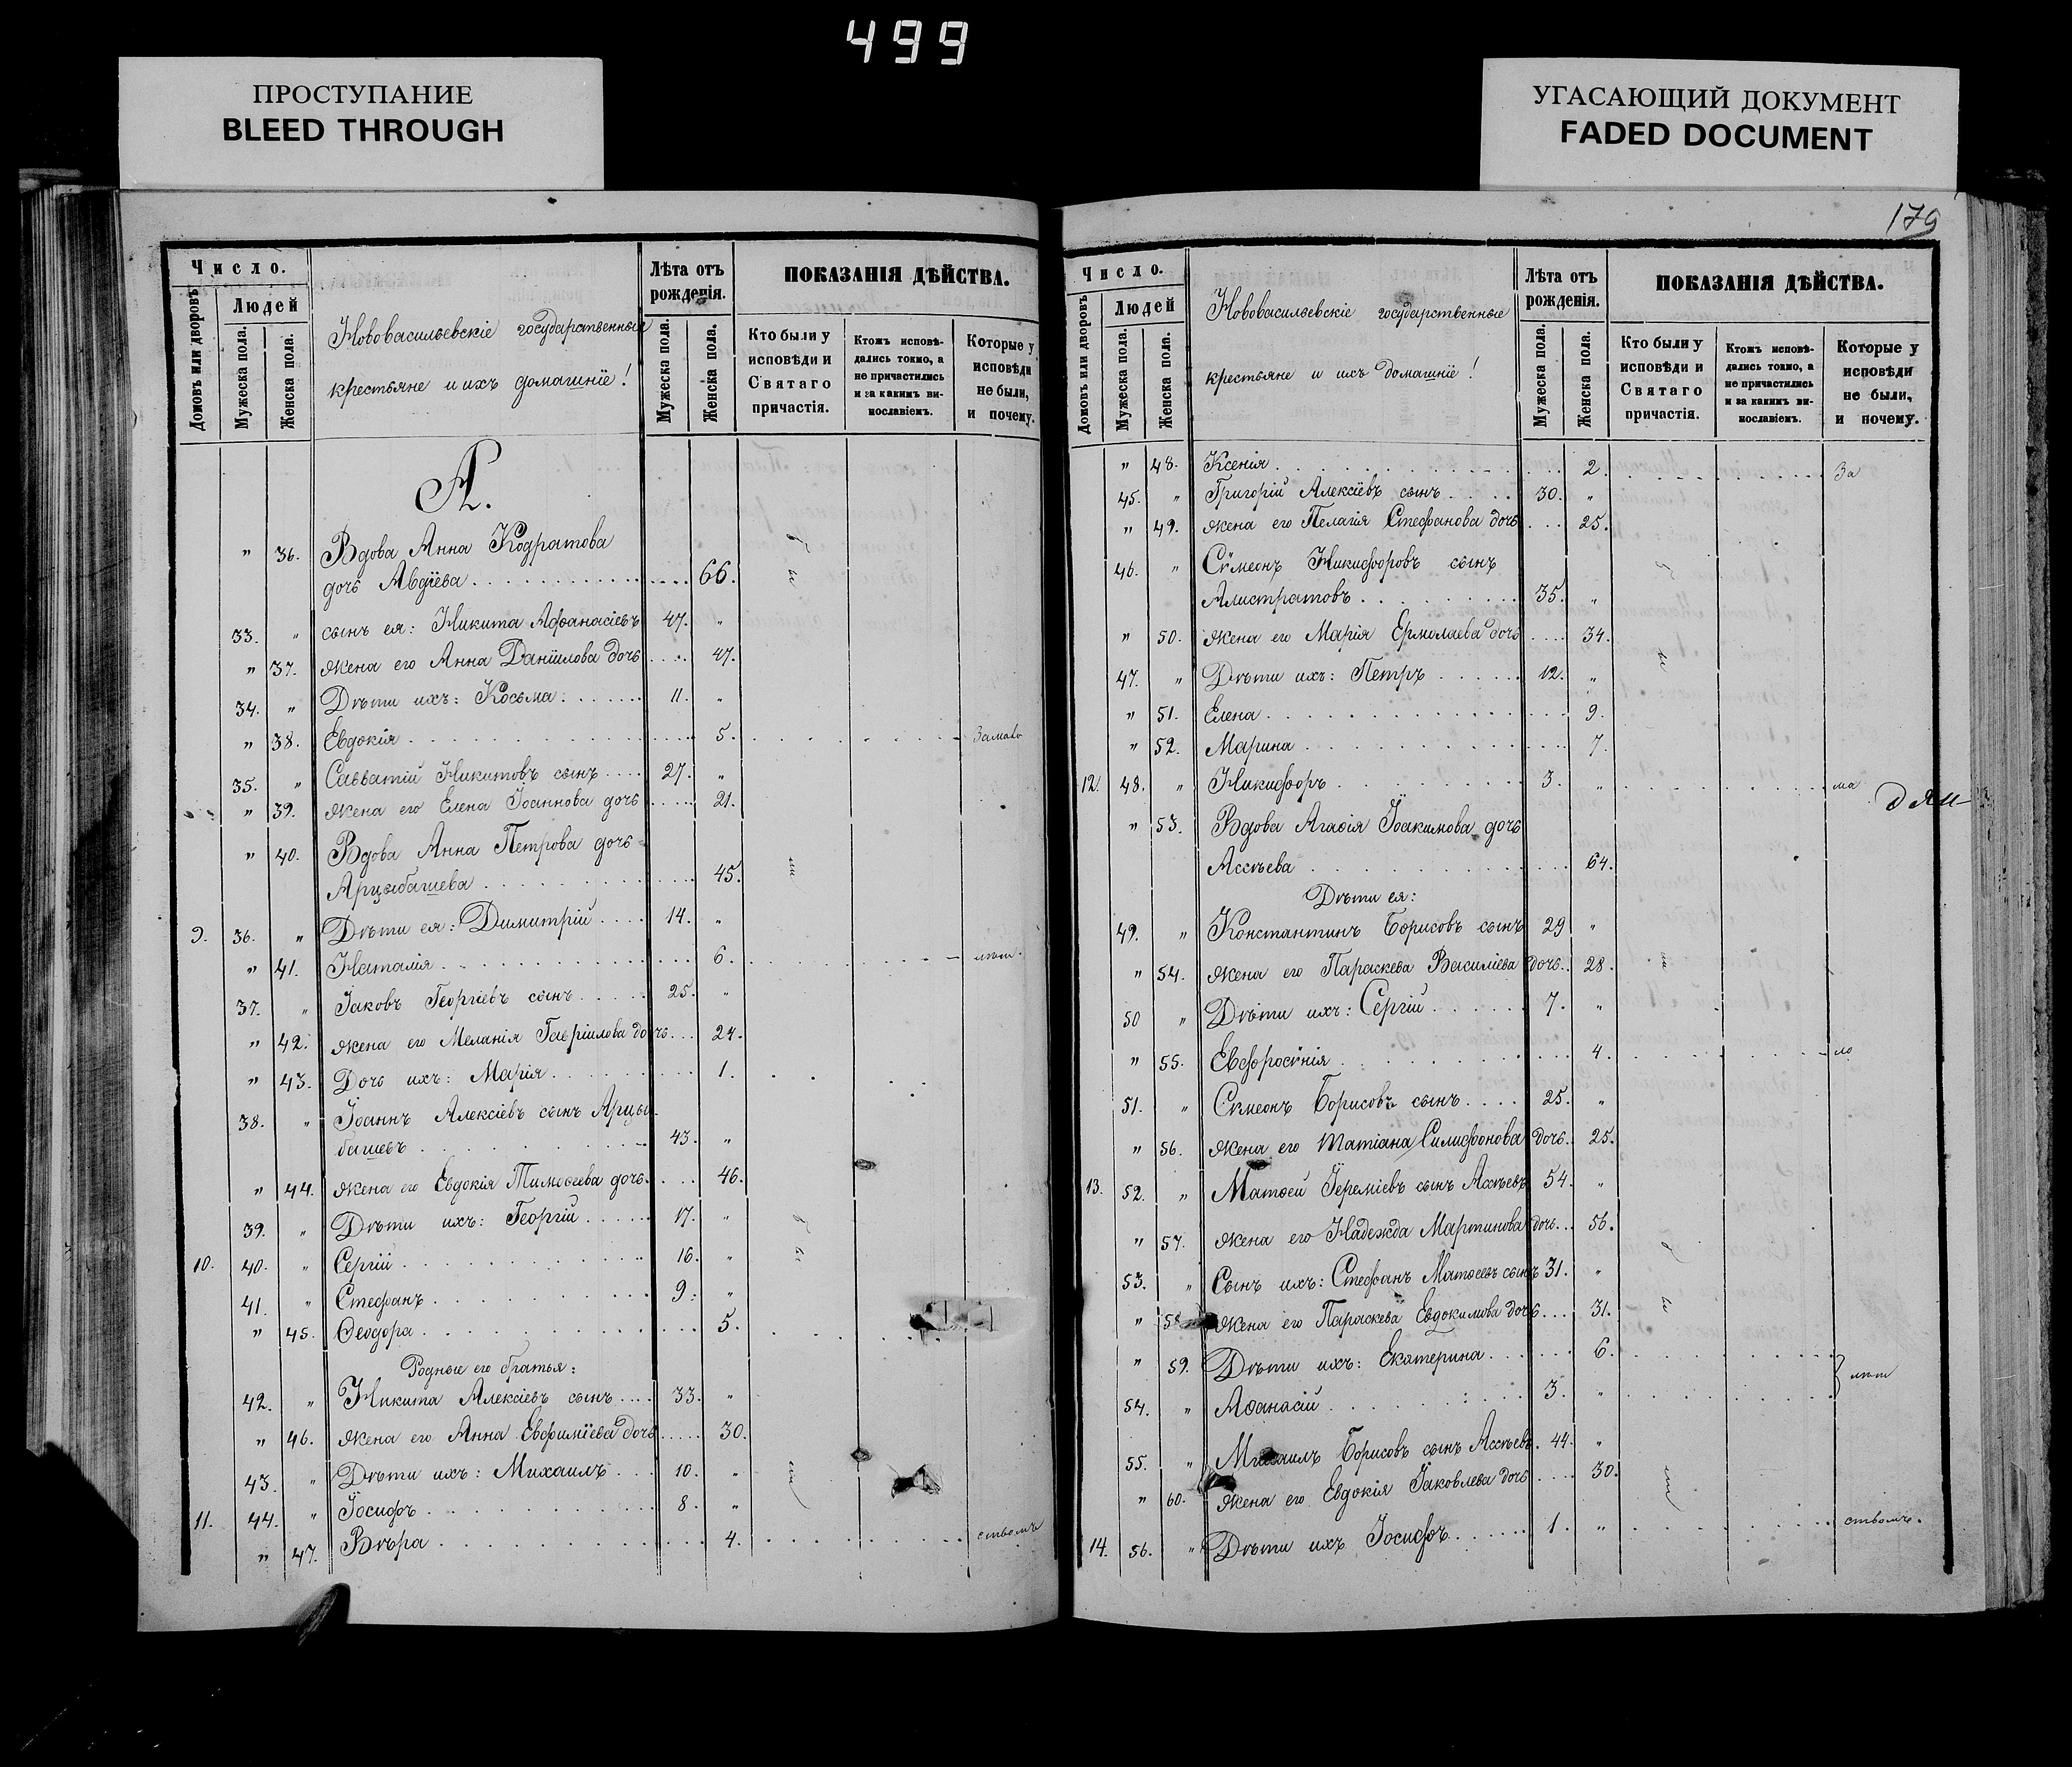 499
ПРОСТУПАНИЕ
BLEED THROUGH
УГАСАЮЩИЙ ДОКУМЕНТ
FADED DOCUMENT
Число.
Людей
Домовъ или дворовъ
Мужеска пола.
Женска пола.
Нововасильевскіе государственные
крестьяне и ихъ домашніе!
Лѣта отъ
рожденія.
Мужеска пола.
Женска пола.
ПОКАЗАНІЯ ДѢЙСТВА.
Кто были у
исповѣди и
Святаго
причастія.
Ктожъ исповѣ-
дались токмо, а
не причастились
и за какимъ ви-
нословіемъ.
Которые у
исповѣди
не были,
и почему.
А.
" 36. Вдова Анна Кодратова
дочь Авдіева 66.
33. " сынъ ея: Никита Афанасіевъ 47. "
" 37. жена его Анна Даніилова дочь 47.
34. " Дѣти ихъ: Косьма 11. "
" 38. Евдокія 5. Замало
35. " Савватій Никитовъ сынъ 27. "
" 39. жена его Елена Іоаннова дочь 21.
" 40. Вдова Анна Петрова дочь
Арцыбашева 45.
9. 36. " Дѣти ея: Димитрій 14. "
" 41. Наталія 6. лѣт.
37. " Іаковъ Георгіевъ сынъ 25. "
" 42. жена его Меланія Гавріилова дочь 24.
" 43. Дочь ихъ: Марія 1.
38. " Іоаннъ Алексіевъ сынъ Арцы-
башевъ 43. "
" 44. жена его Евдокія Тимоѳеева дочь 46.
39. " Дѣти ихъ: Георгій 17. "
10. 40. " Сергій 16. "
41. " Стефанъ 9. "
" 45. Ѳеодора 5.
Родные его братья:
42. " Никита Алексіевъ сынъ 33. "
" 46. жена его Анна Евфиміева дочь 30.
43. " Дѣти ихъ: Михаилъ 10. "
11. 44. " Іосифъ 8. "
" 47. Вѣра 4. ствомъ
179
Число.
Людей
Домовъ или дворовъ
Мужеска пола.
Женска пола.
Нововасильевскіе государственные
крестьяне и ихъ домашніе!
Лѣта отъ
рожденія.
Мужеска пола.
Женска пола.
ПОКАЗАНІЯ ДѢЙСТВА.
Кто были у
исповѣди и
Святаго
причастія.
Ктожъ исповѣ-
дались токмо, а
не причастились
и за какимъ ви-
нословіемъ.
Которые у
исповѣди
не были,
и почему.
" 48. Ксенія 2. За
45. " Григорій Алексіевъ сынъ 30. "
" 49. жена его Пелагія Стефанова дочь 25.
46. " Сѵмеонъ Никифоровъ сынъ
Алистратовъ 35. "
" 50. жена его Марія Ермолаева дочь 34.
47. " Дѣти ихъ: Петръ 12. "
" 51. Елена 9.
" 52. Марина 7.
12. 48. " Никифоръ 3. " ма
" 53. Вдова Агаѳія Іоакимова дочь
Ассѣева 64.
Дѣти ея:
49. " Константинъ Борисовъ сынъ 29 "
" 54. жена его Параскева Василіева дочь 28.
50 " Дѣти ихъ: Сергій 7. "
" 55. Евфросѵнія 4. ло
51. " Сѵмеонъ Борисовъ сынъ 25. "
" 56. жена его Татіана Силифонова дочь 25.
13. 52. " Матѳей Іереміевъ сынъ Ассѣевъ 54. "
" 57. жена его Надежда Мартинова дочь 56.
53. " Сынъ ихъ: Стефанъ Матѳеевъ сынъ 31. "
" 58 жена его Параскева Евдокимова дочь 31.
" 59. Дѣти ихъ: Екатерина 6.
54. " Аѳанасій 3. " лѣт
55. " Михаилъ Борисовъ сынъ Ассѣевъ 44. "
" 60. жена его Евдокія Іаковлева дочь 30.
14. 56. " Дѣти ихъ Іосифъ 1. " ствомъ.